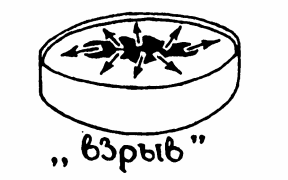 „взрыв”